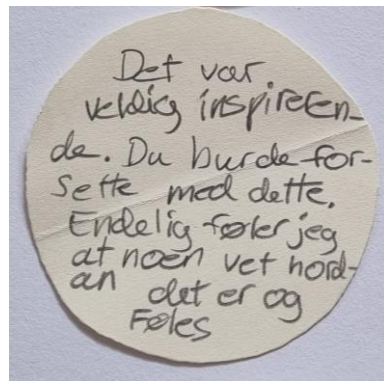 Det var
veldig inspireren-
de. Du burde for-
sette med dette.
Endelig føler jeg
at noen vet hord-
an det er og
Føles